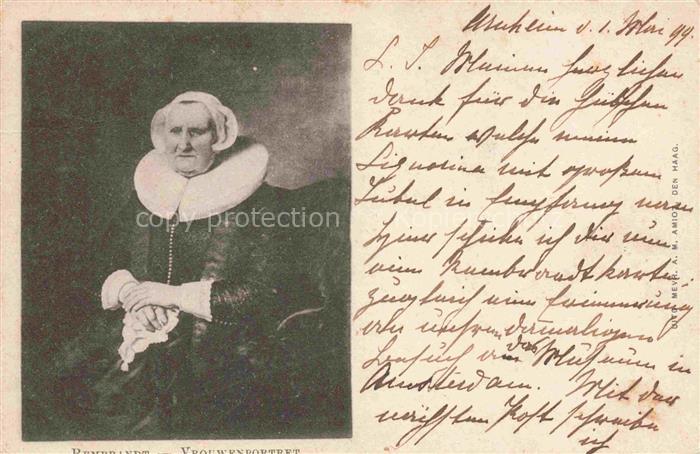 Arnheim d. 1. Mai 99.
L. S. Meinen herzlichen
dank für die hübschen
Karten welche meine
Signorina mit großem
Jubel in Empfang nahm
Hier schicke ich dir nun
eine Rembrandtkarte
zugleich eine Erinnerung
an unsren damaligen
Besuch an das Museum in
Amsterdam. Mit der
nächsten Post schreibe
ich
REMBRANDT — VROUWENPORTRET
MEVR. A. M. AMIOT, DEN HAAG.
copy protection